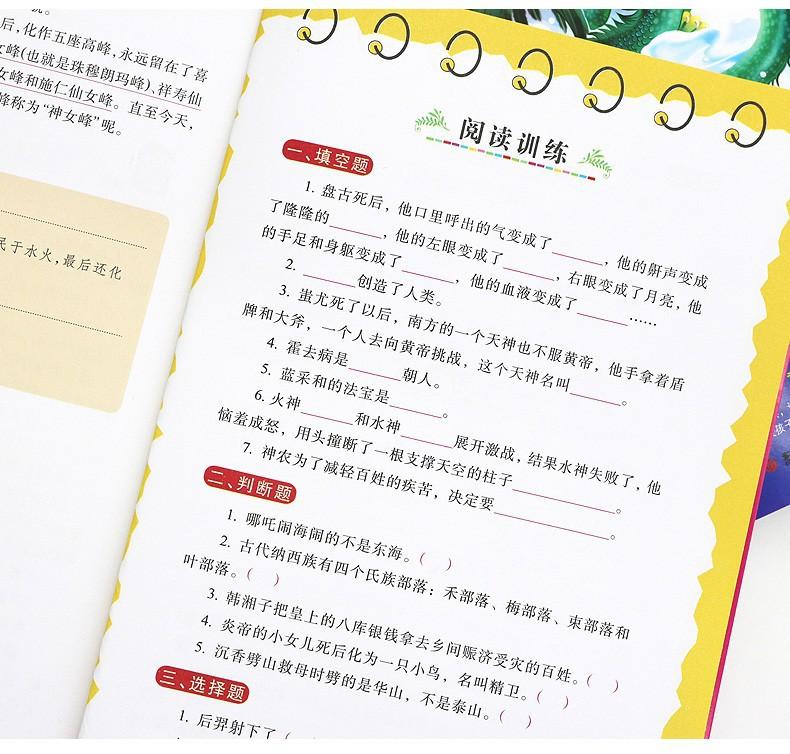 后，化作五座高峰，永远留在了喜
女峰(也就是珠穆朗玛峰)、祥寿仙
女峰和施仁仙女峰。直至今天，
峰称为“神女峰”呢。
民于水火，最后还化
阅读训练
一、填空题
1. 盘古死后，他口里呼出的气变成了______，他的鼾声变成
了隆隆的______，他的左眼变成了______，右眼变成了月亮，他
的手足和身躯变成了______，他的血液变成了______……
2. ______创造了人类。
3. 蚩尤死了以后，南方的一个天神也不服黄帝，他手拿着盾
牌和大斧，一个人去向黄帝挑战，这个天神名叫______。
4. 霍去病是______朝人。
5. 蓝采和的法宝是______。
6. 火神______和水神______展开激战，结果水神失败了，他
恼羞成怒，用头撞断了一根支撑天空的柱子____________。
7. 神农为了减轻百姓的疾苦，决定要____________。
二、判断题
1. 哪吒闹海闹的不是东海。（ ）
2. 古代纳西族有四个氏族部落：禾部落、梅部落、束部落和
叶部落。（ ）
3. 韩湘子把皇上的八库银钱拿去乡间赈济受灾的百姓。（ ）
4. 炎帝的小女儿死后化为一只小鸟，名叫精卫。（ ）
5. 沉香劈山救母时劈的是华山，不是泰山。（ ）
三、选择题
1. 后羿射下了（